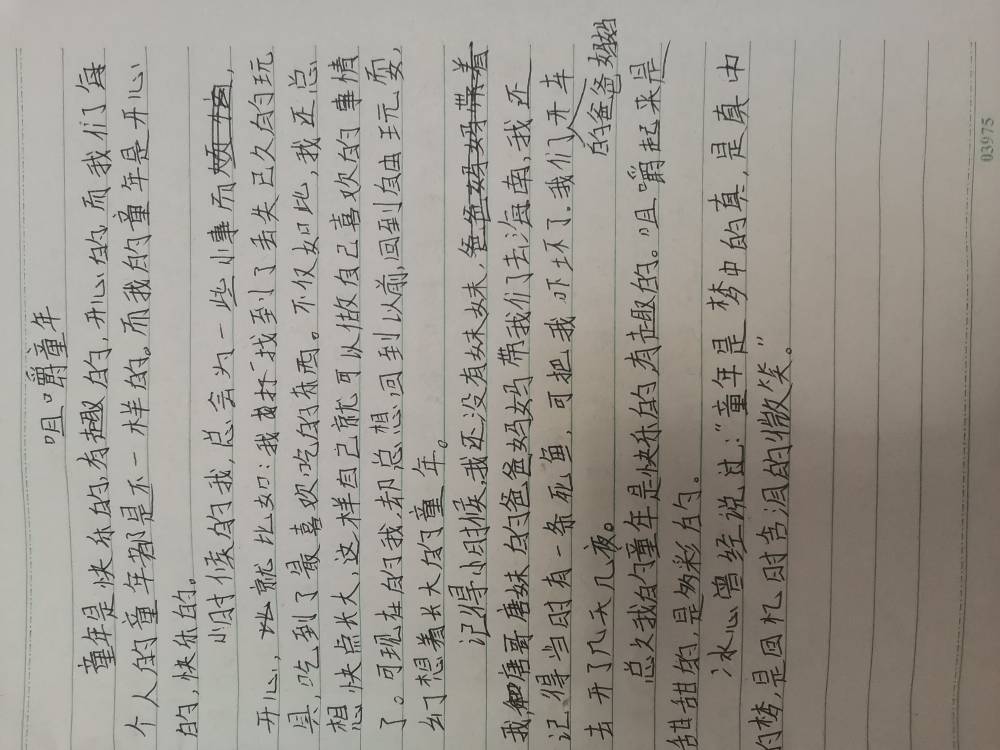 咀嚼童年
童年是快乐的,有趣的,开心的,而我们每
个人的童年都是不一样的。而我的童年是开心
的,快乐的。
小时候的我,总会为一些小事而
开心,比就比如:我找到了丢失已久的玩
具,吃到了最喜欢吃的东西。不仅如此,我还总
想快点长大,这样自己就可以做自己喜欢的事情
了。可现在的我,却总想回到以前,回到自由玩耍,
幻想着长大的童年。
记得小时候,我还没有妹妹,爸爸妈妈带着
我和唐哥唐妹的爸爸妈妈带我们去海南,我还
记得当时有一条死鱼,可把我吓坏了,我们开车
的爸爸妈妈
去开了几天几夜。
总久我的童年是快乐的有趣的。咀嚼起来是
甜甜的,是多彩的。
冰心曾经说过:“童年是梦中的真,是真中
的梦,是回忆时含泪的微笑”。
03975